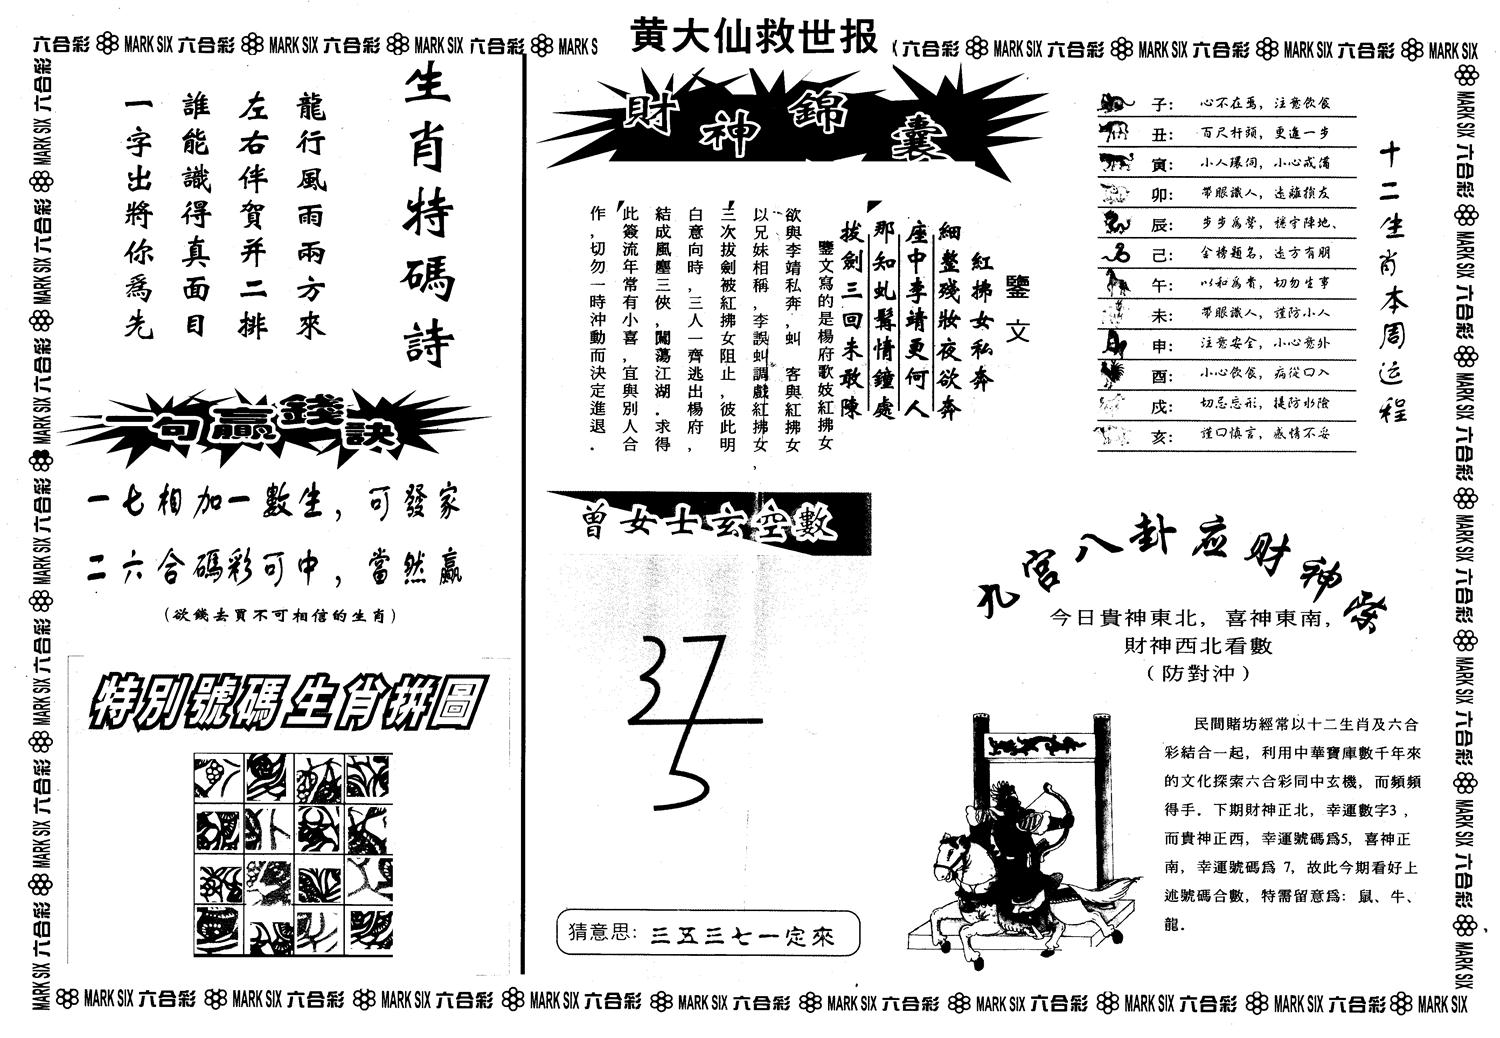 黄大仙救世报
六合彩 MARK SIX 六合彩 MARK SIX 六合彩 MARK SIX 六合彩 MARK S
六合彩 MARK SIX 六合彩 MARK SIX 六合彩 MARK SIX 六合彩 MARK SIX
生肖特碼詩
龍行風雨兩方來
左右伴賀并二排
誰能識得真面目
一字出將你為先
一句贏錢訣
一七相加一數生，可發家
二六合碼彩可中，當然贏
（欲錢去買不可相信的生肖）
特別號碼生肖拼圖
財神錦囊
鑒文
紅拂女私奔
細整殘妝夜欲奔
座中李靖更何人
那知虬髯情鐘處
拔劍三回未敢陳
鑒文寫的是楊府歌妓紅拂女
欲與李靖私奔，虬 客與紅拂女
以兄妹相稱，李誤虬調戲紅拂女，
三次拔劍被紅拂女阻止，彼此明
白意向時，三人一齊逃出楊府，
結成風塵三俠，闖蕩江湖．求得
此簽流年常有小喜，宜與別人合
作，切勿一時沖動而決定進退．
曾女士玄空數
37
5
猜意思：三五三七一定來
十二生肖本周运程
子： 心不在焉，注意飲食
丑： 百尺杆頭，更進一步
寅： 小人環伺，小心戒備
卯： 帶眼識人，遠離損友
辰： 步步為營，穩守陣地、
己： 金榜題名，遠方有朋
午： 以和為貴，切勿生事
未： 帶眼識人，謹防小人
申： 注意安全，小心意外
酉： 小心飲食，病從口入
戌： 切忌忘形，提防水險
亥： 謹口慎言，感情不妥
九宮八卦应财神案
今日貴神東北，喜神東南，
財神西北看數
（防對沖）
民間賭坊經常以十二生肖及六合
彩結合一起，利用中華寶庫數千年來
的文化探索六合彩同中玄機，而頻頻
得手．下期財神正北，幸運數字3，
而貴神正西，幸運號碼爲5，喜神正
南，幸運號碼爲 7，故此今期看好上
述號碼合數，特需留意爲：鼠、牛、
龍．
MARK SIX 六合彩 MARK SIX 六合彩 MARK SIX 六合彩 MARK SIX 六合彩 MARK SIX 六合彩 MARK SIX 六合彩 MARK SIX 六合彩 MARK SIX 六合彩 MARK SIX 六合彩 MARK SIX